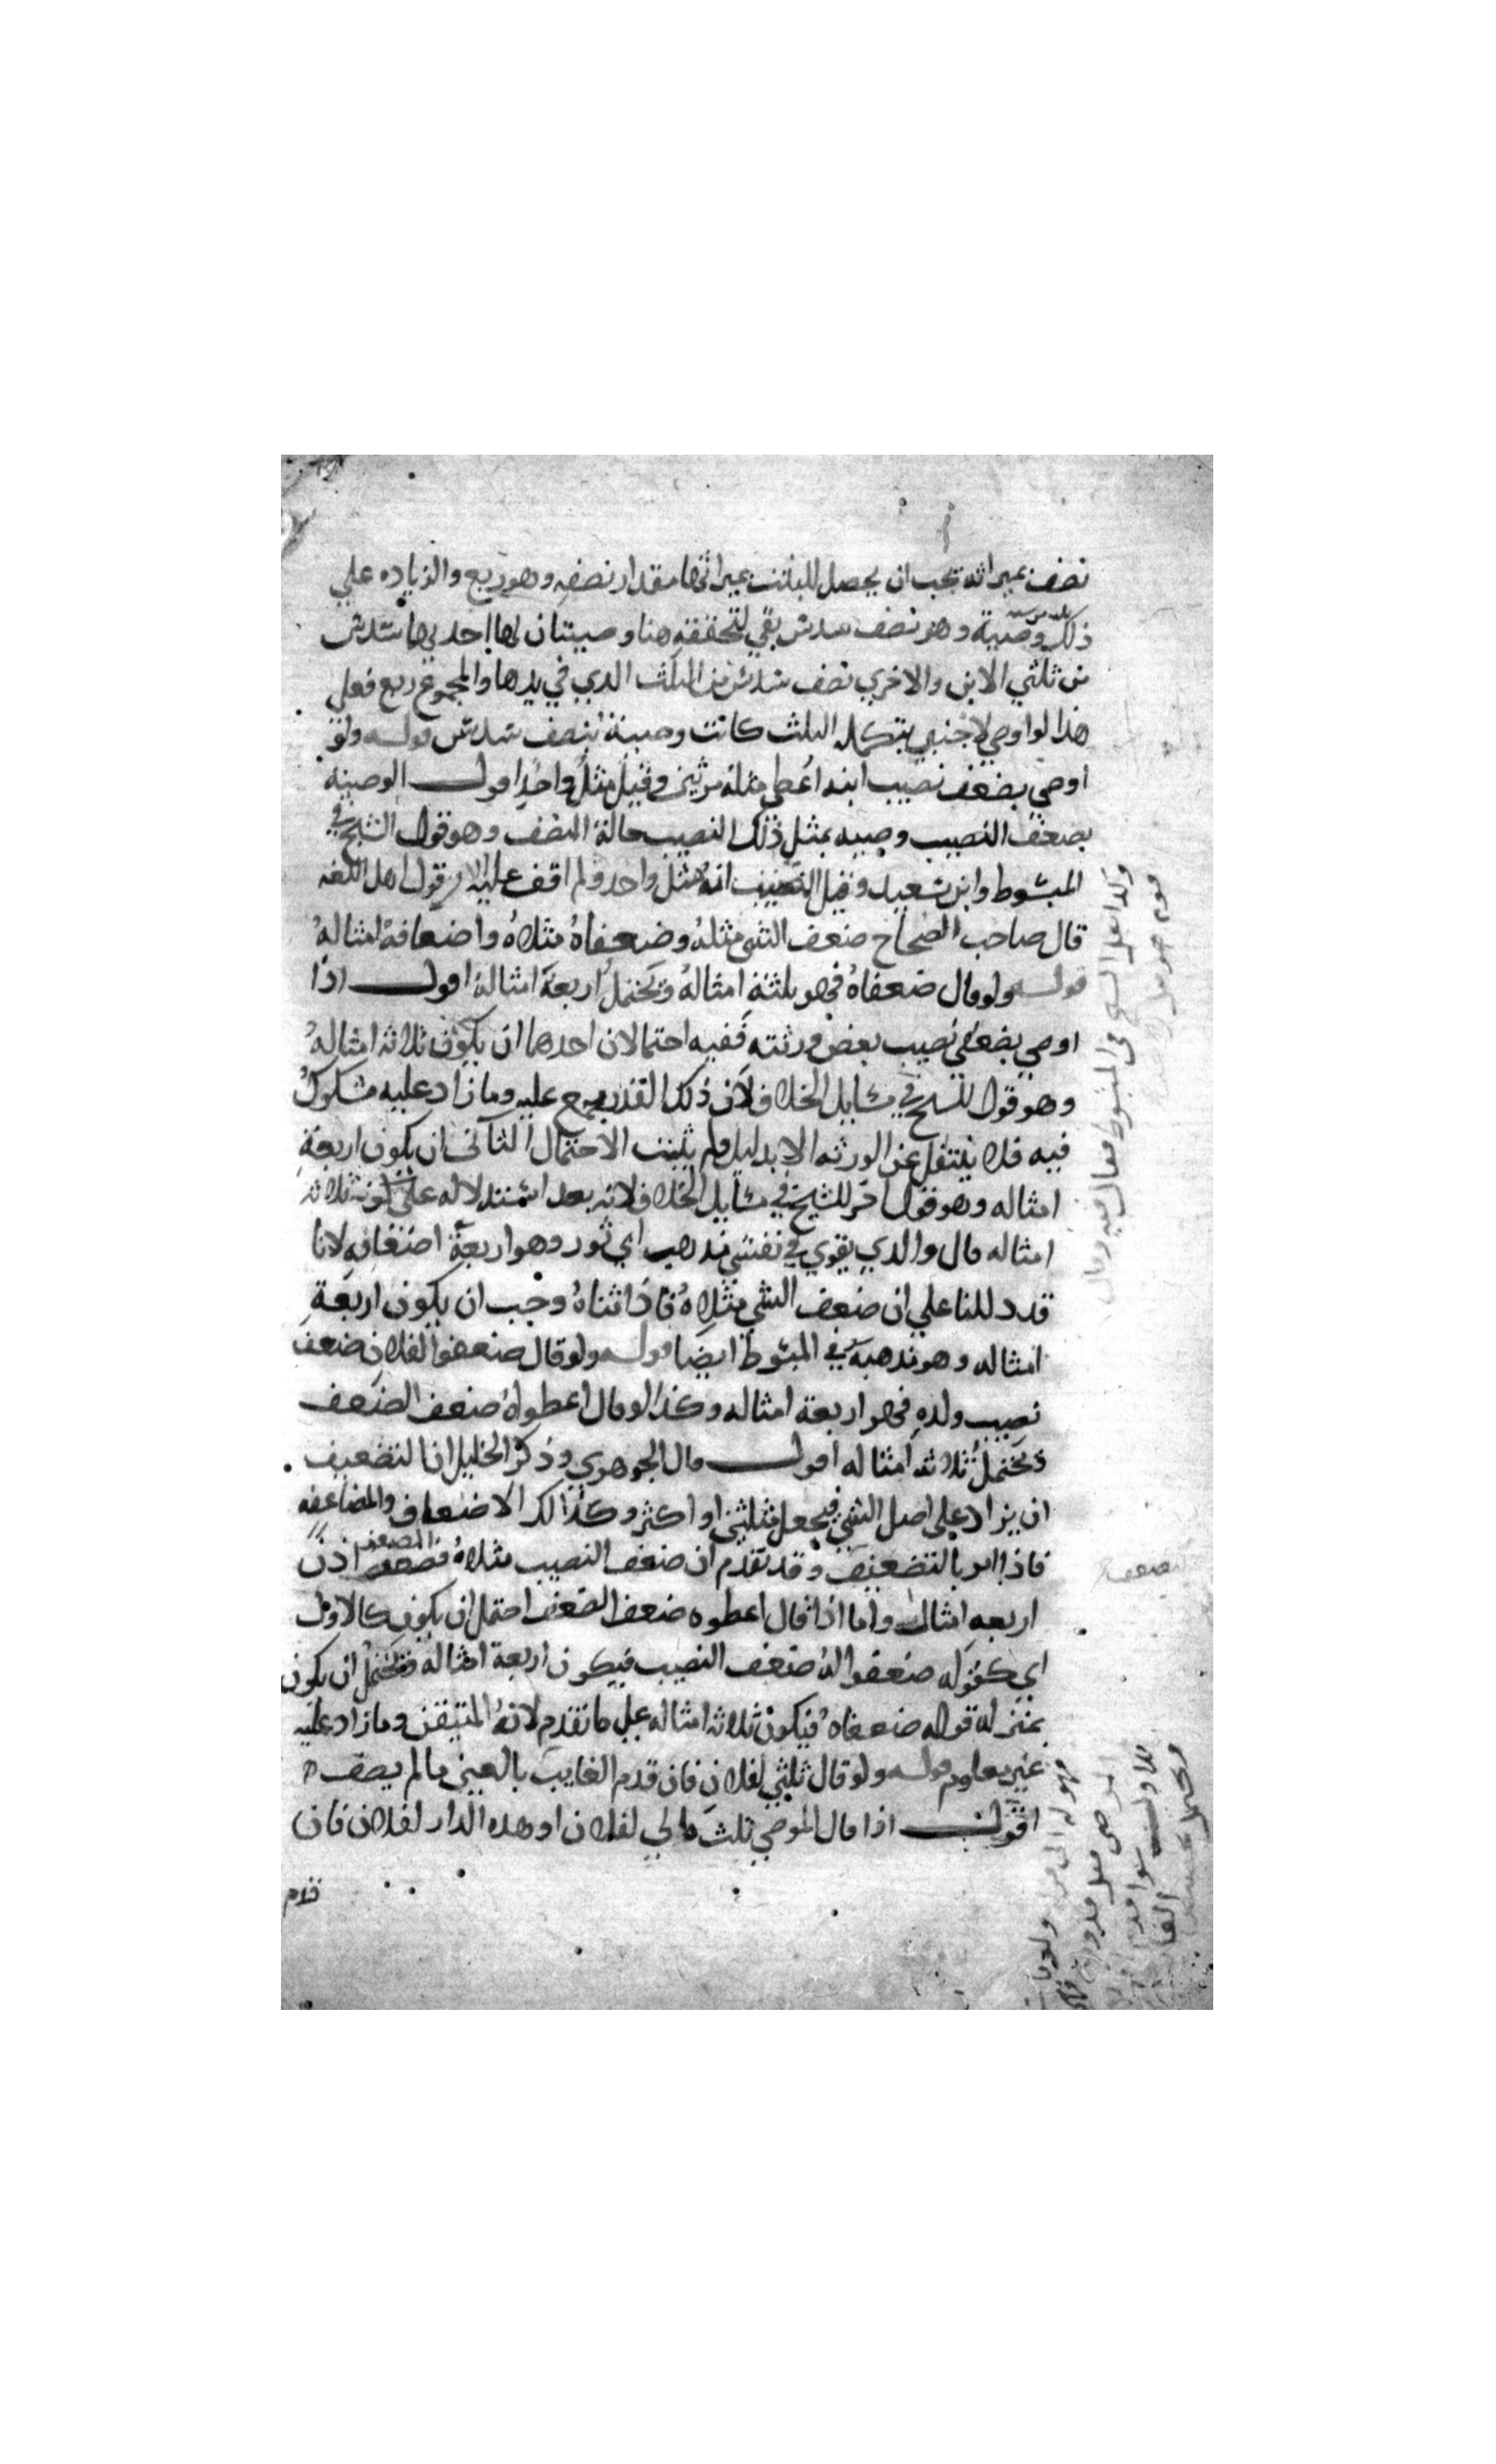 نصف ميراثه يجب ان يحصل للبنت ميراثها مقدار نصفه وهو ربع والزياده علي
ذلك وصية وهو نصف سدش بقي لتحققه هنا وصيتان لها احديهما شدش
من ثلثي الابن والاخري نصف شدش من الثلث الدي في يدها والمجموع ربع فعلي
هدا لو اوصي لاجنبي بتكمله الثلث كانت وصية بنصف شدش قوله ولو
اوصي بضعف نصيب ابنه اعطي مثله مرتين وقيل مثل واحد اقول الوصية
بضعف النصيب وصيه بمثل ذلك النصيب حالة النصف وهو قول الشيخ في
المبشوط وابن شعيد وقيل انه مثل واحد ولم اقف عليه الا من قول اهل اللغه
قال صاحب الصحاح ضعف الشي مثله وضعفاه مثلاه واضعافه امثاله
قوله ولو قال ضعفاه فهو ثلثة امثاله ويحتمل اربعة امثاله اقول اذا
اوصي بضعفي نصيب بعض ورثته ففيه احتمالان احدهما ان يكون ثلاثه امثاله
وهو قول للشيخ في مشايل الخلاف لان ذلك القدر مجمع عليه وما زاد عليه مشكوك
فيه فلا ينتقل عن الورثه الا بدليل ولم يثبت الاحتمال الثاني ان يكون اربعة
امثاله وهو قول اخر للشيخ في مشايل الخلاف لانه بعد اشتدلاله علي كونه ثلاثه
امثاله قال والدي يقوي في نفشي مدهب ابي ثور وهو اربعة اضعافه لانا
قد دللنا علي ان ضعف الشي مثلاه فاذا ثناه وجب ان يكون اربعة
امثاله وهو مدهبه في المبشوط ايضا قوله ولو قال ضعفوا لفلان ضعف
نصيب ولده فهو اربعة امثاله وكذا لو قال اعطوه ضعف الضعف
ويحتمل ثلاثه امثاله اقول قال الجوهري وذكر الخليل ان التضعيف
ان يزاد علي اصل الشي فيجعل مثلين او اكثر وكذالك الاضعاف والمضاعفه
فاذا امر بالتضعيف وقد تقدم ان ضعف النصيب مثلاه اذن
اربعه امثال واما اذا قال اعطوه ضعف الضعف احتمل ان يكون كالاول
اي كقوله ضعفوا له ضعف النصيب فيكون اربعة امثاله ويحتمل ان يكون
بمنزله قوله ضعفاه فيكون ثلاثه امثاله علي ما تقدم لانه المتيقن وما زاد عليه
غير معلوم قوله ولو قال ثلثي لفلان فان قدم الغايب بالعين ما لم يصف
اقول اذا قال الموصي ثلث مالي لفلان او هده الدار لفلان فان
قدم